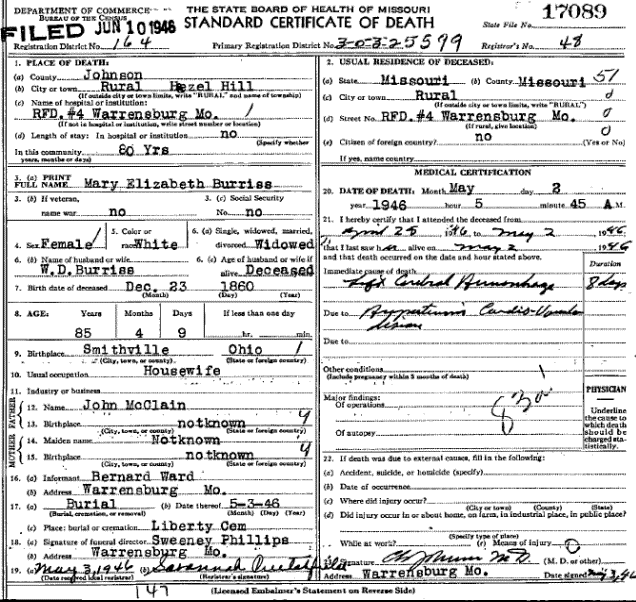 DEPARTMENT OF COMMERCE
BUREAU OF THE CENSUS
FILED JUN 10 1946
THE STATE BOARD OF HEALTH OF MISSOURI
STANDARD CERTIFICATE OF DEATH
17089
State File No.
Registration District No. 164
Primary Registration District No. 3032 5599
Registrar's No. 48
1. PLACE OF DEATH:
(a) County Johnson
(b) City or town Rural Hazel Hill
(If outside city or town limits, write "RURAL" and name of township)
(c) Name of hospital or institution:
RFD.#4 Warrensburg Mo.
(If not in hospital or institution, write street number or location)
(d) Length of stay: In hospital or institution no
(Specify whether
In this community 80 Yrs
years, months or days)
2. USUAL RESIDENCE OF DECEASED:
(a) State Missouri (b) County Missouri 51
(c) City or town Rural 0
(If outside city or town limits, write "RURAL")
(d) Street No. RFD.#4 Warrensburg Mo. 0
(If rural, give location) 0
(e) Citizen of foreign country? no (Yes or No)
If yes, name country
3. (a) PRINT
FULL NAME Mary Elizabeth Burriss
3. (b) If veteran,
name war no
3. (c) Social Security
No. no
4. Sex Female
5. Color or
race White
6. (a) Single, widowed, married,
divorced Widowed
6. (b) Name of husband or wife
W.D.Burriss
6. (c) Age of husband or wife if
alive Deceased
7. Birth date of deceased Dec. 23 1860
(Month) (Day) (Year)
8. AGE: Years Months Days If less than one day
85 4 9 hr. min.
9. Birthplace Smithville Ohio
(City, town, or county) (State or foreign country)
10. Usual occupation Housewife
11. Industry or business
FATHER
12. Name John McClain
13. Birthplace notknown 9
(City, town, or county) (State or foreign country)
MOTHER
14. Maiden name Notknown
15. Birthplace notknown 9
(City, town, or county) (State or foreign country)
16. (a) Informant Bernard Ward
(b) Address Warrensburg Mo.
17. (a) Burial (b) Date thereof 5-3-46
(Burial, cremation, or removal) (Month) (Day) (Year)
(c) Place: burial or cremation Liberty Cem
18. (a) Signature of funeral director Sweeney Phillips
(b) Address Warrensburg Mo.
19. (a) May 3, 1946 (b) Savannah
(Date received local registrar) (Registrar's signature)
MEDICAL CERTIFICATION
20. DATE OF DEATH: Month May day 2
year 1946 hour 5 minute 45 A M.
21. I hereby certify that I attended the deceased from
April 25 1946 to May 2 1946
that I last saw h alive on May 2 1946
and that death occurred on the date and hour stated above.
Duration
Immediate cause of death
Left Cerebral Hemorrhage 8 days
Due to Hypertensive Cardio-Vascular
disease
Due to
Other conditions
(Include pregnancy within 3 months of death)
Major findings:
Of operations
Of autopsy
PHYSICIAN
Underline
the cause to
which death
should be
charged sta-
tistically.
22. If death was due to external causes, fill in the following:
(a) Accident, suicide, or homicide (specify)
(b) Date of occurrence
(c) Where did injury occur?
(City or town) (County) (State)
(d) Did injury occur in or about home, on farm, in industrial place, in public place?
(Specify type of place)
While at work? (e) Means of injury
Signature (M. D. or other)
Address Warrensburg Mo. Date signed May 3,46
147
(Licensed Embalmer's Statement on Reverse Side)